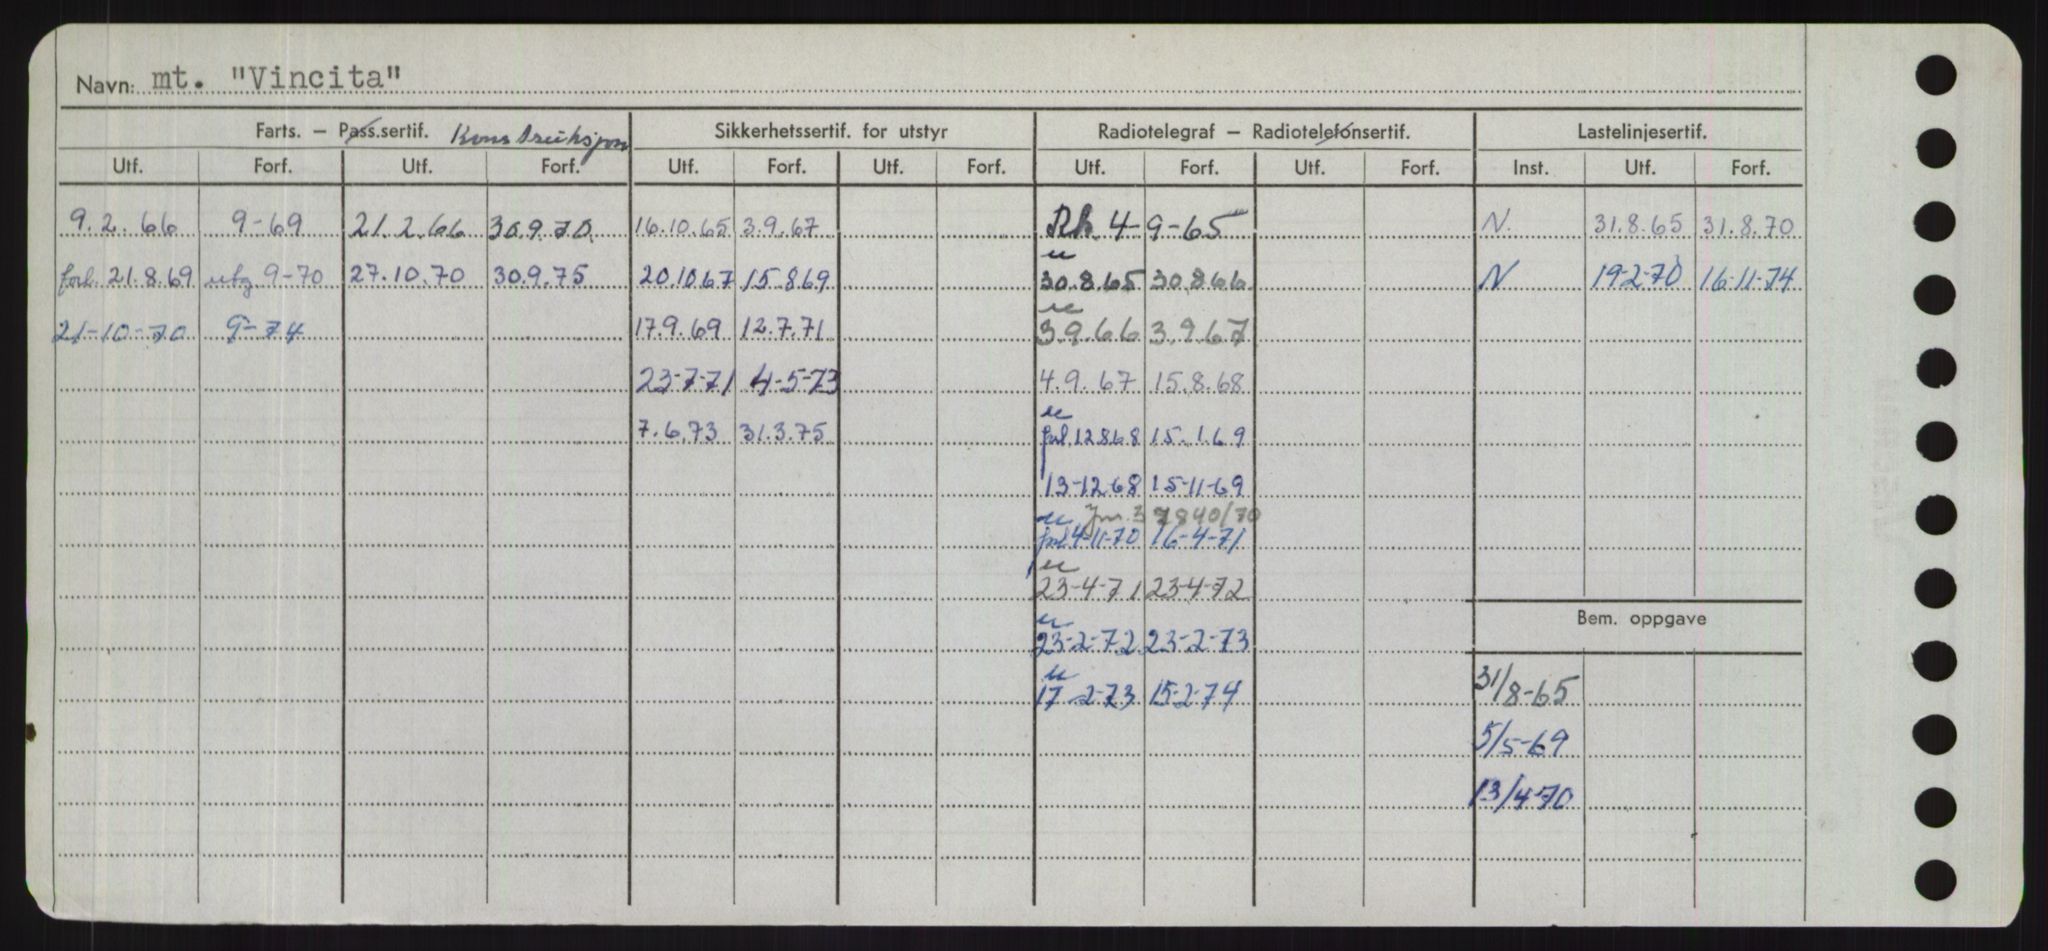 Navn: mt. "Vincita"
Farts. – Pass.sertif. Konstruksjon Sikkerhetssertif. for utstyr Radiotelegraf – Radiotelefonsertif. Lastelinjesertif.
Utf. Forf. Utf. Forf. Utf. Forf. Utf. Forf. Utf. Forf. Utf. Forf. Inst. Utf. Forf.
9.2.66 9-69 21.2.66 30.9.70 16.10.65 3.9.67 4-9-65 N. 31.8.65 31.8.70
forl. 21.8.69 utg 9-70 27.10.70 30.9.75 20.10.67 15.8.69 30.8.65 30.8.66 N 19-2-70 16-11-74
21-10-70 9-74 17.9.69 12.7.71 3.9.66 3.9.67
23-7-71 4-5-73 4.9.67 15.8.68
7.6.73 31.3.75 forl. 12.8.68 15.1.69
13-12-68 15-11-69
Jnr. 37840/70
forl. 4-11-70 16-4-71
23-4-71 23-4-72
Bem. oppgave
23-2-72 23-2-73
17-2-73 15-2-74 31/8-65
5/5-69
13/4-70